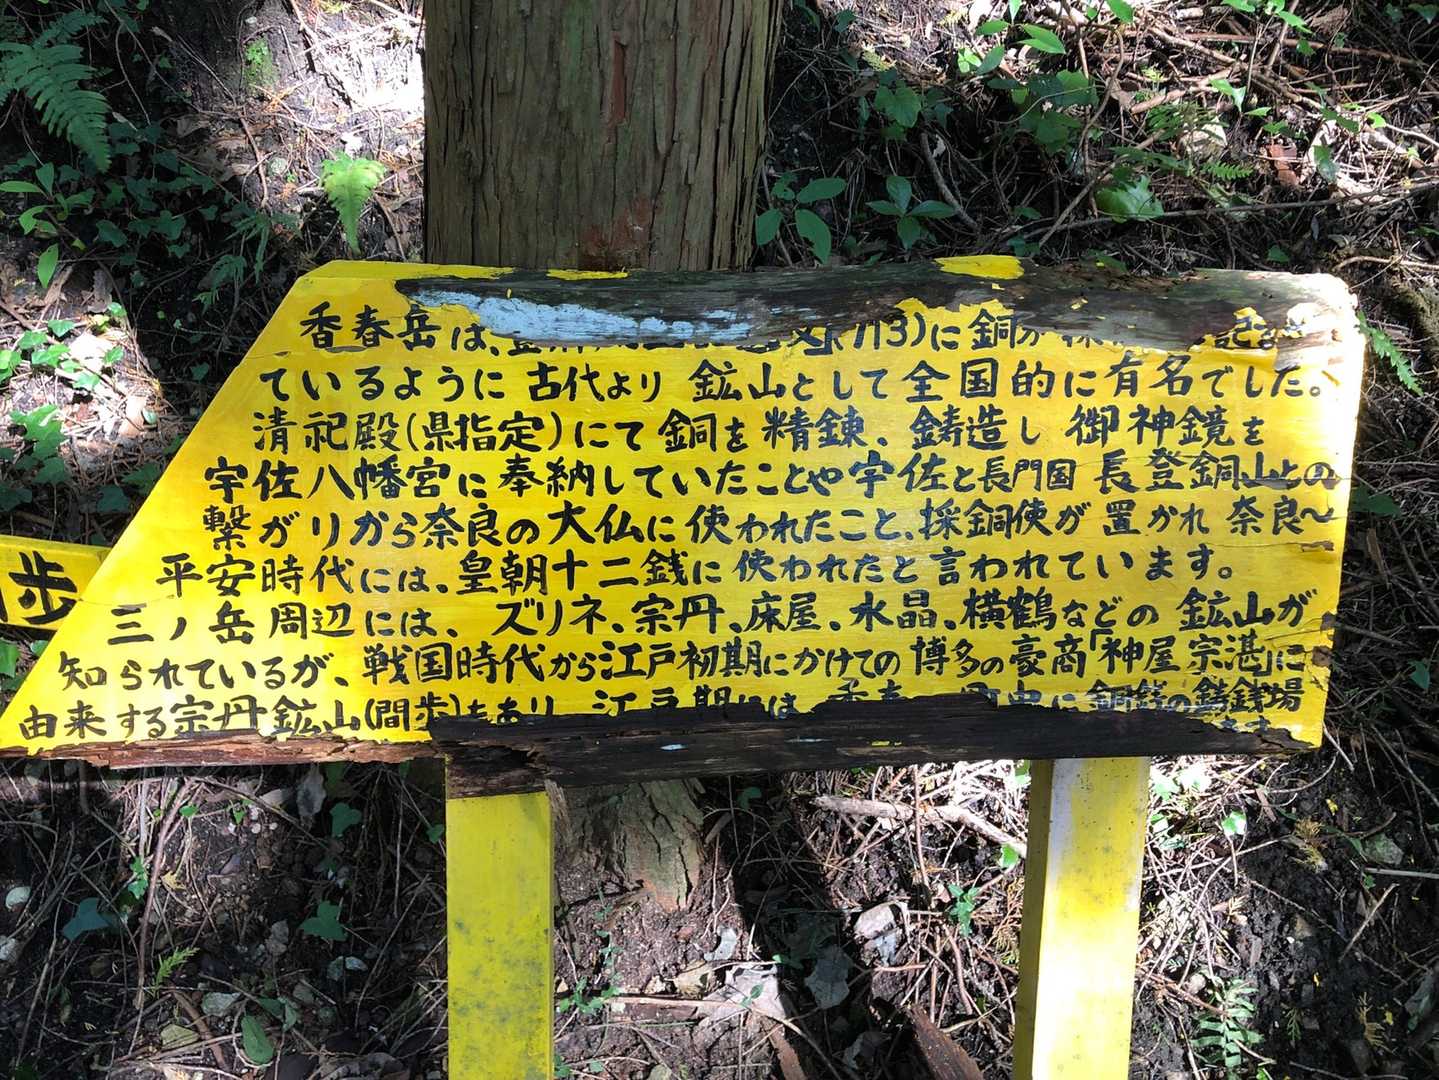 香春岳は、(713)に銅が採
ているように古代より 鉱山として全国的に有名でした。
清祀殿(県指定)にて銅を精錬、鋳造し 御神鏡を
宇佐八幡宮に奉納していたことや宇佐と長門国 長登銅山との
繋がりから奈良の大仏に使われたこと、採銅使が置かれ 奈良〜
平安時代には、皇朝十二銭に使われたと言われています。
三ノ岳周辺には、ズリネ、宗丹、床屋、水晶、横鶴などの 鉱山が
知られているが、戦国時代から江戸初期にかけての博多の豪商「神屋宗湛」に
由来する宗丹鉱山(間歩)もあり 江戸期には 香春 に銅銭の鋳銭場
ます
歩